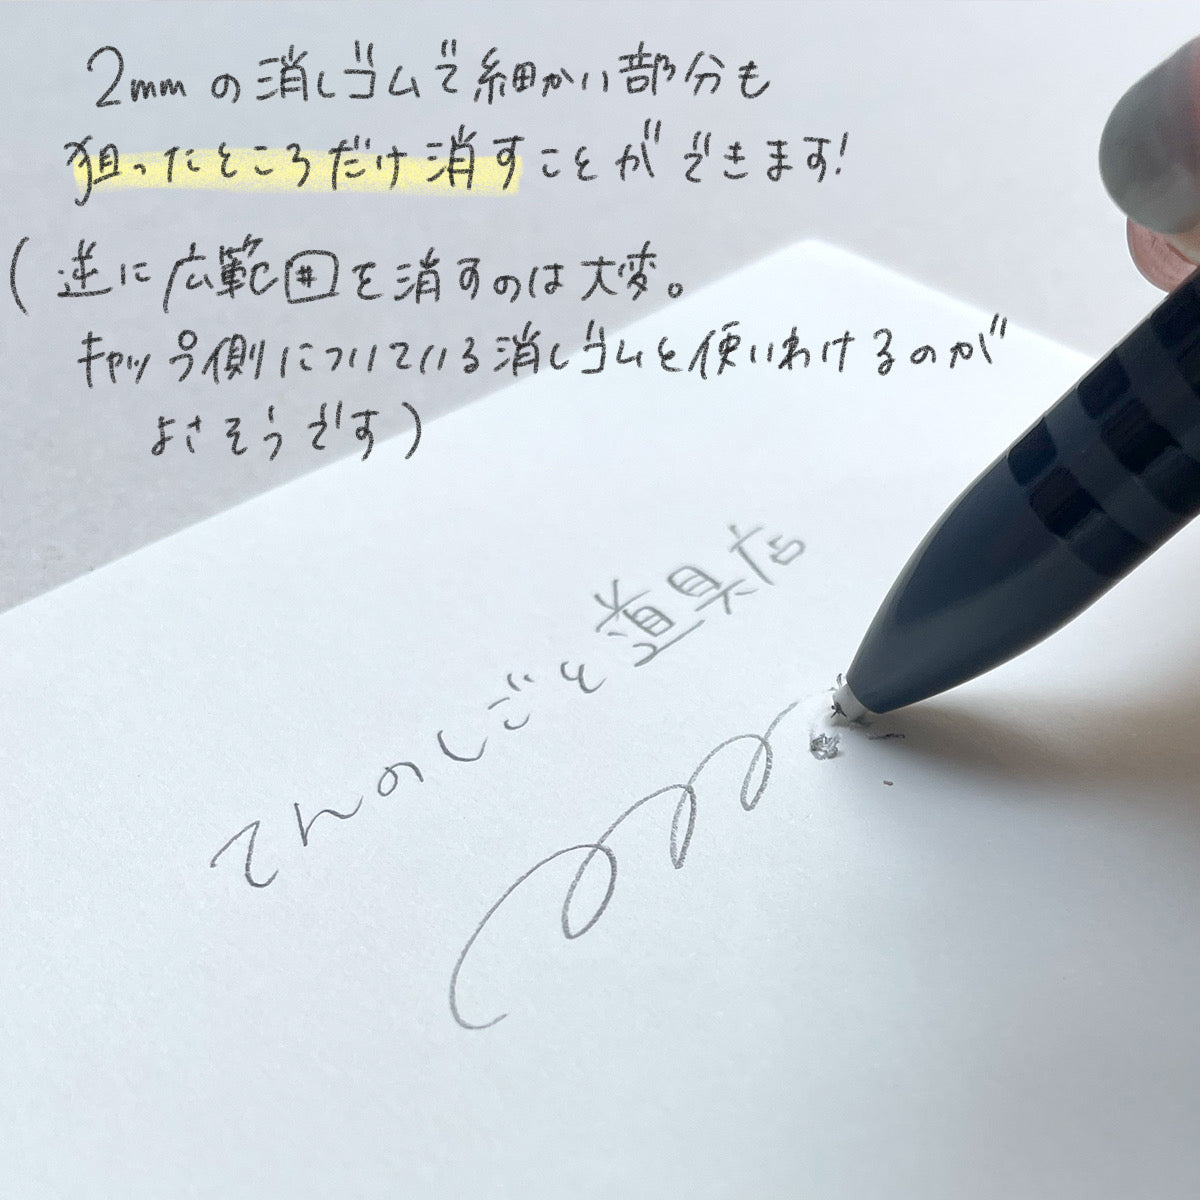 2mmの消しゴムで細かい部分も
狙ったところだけ消すことができます!
(逆に広範囲を消すのは大変。
キャップ側についている消しゴムと使いわけるのが
よさそうです)
てんのしごと道具店